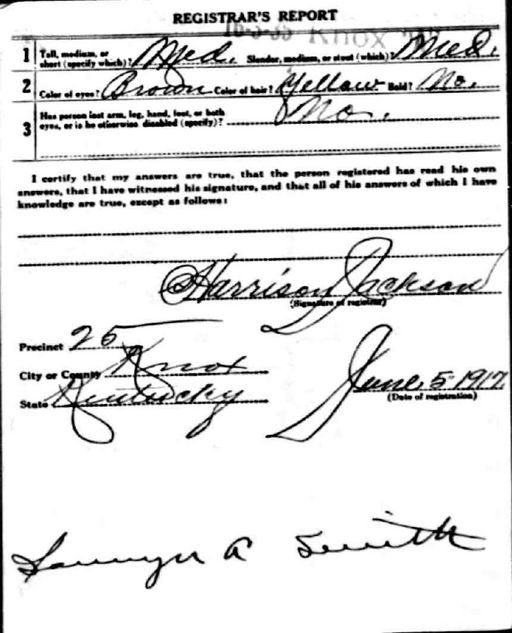 REGISTRAR'S REPORT
Knox
1 Tall, medium, or short (specify which)? Med. Slender, medium, or stout (which)? Med.
2 Color of eyes? Brown Color of hair? Yellow Bald? No.
3 Has person lost arm, leg, hand, foot, or both eyes, or is he otherwise disabled (specify)? No.
I certify that my answers are true, that the person registered has read his own
answers, that I have witnessed his signature, and that all of his answers of which I have
knowledge are true, except as follows:
Harrison Jackson
(Signature of registrar)
Precinct 25
City or County Knox
State Kentucky
June 5-1917
(Date of registration)
A Smith